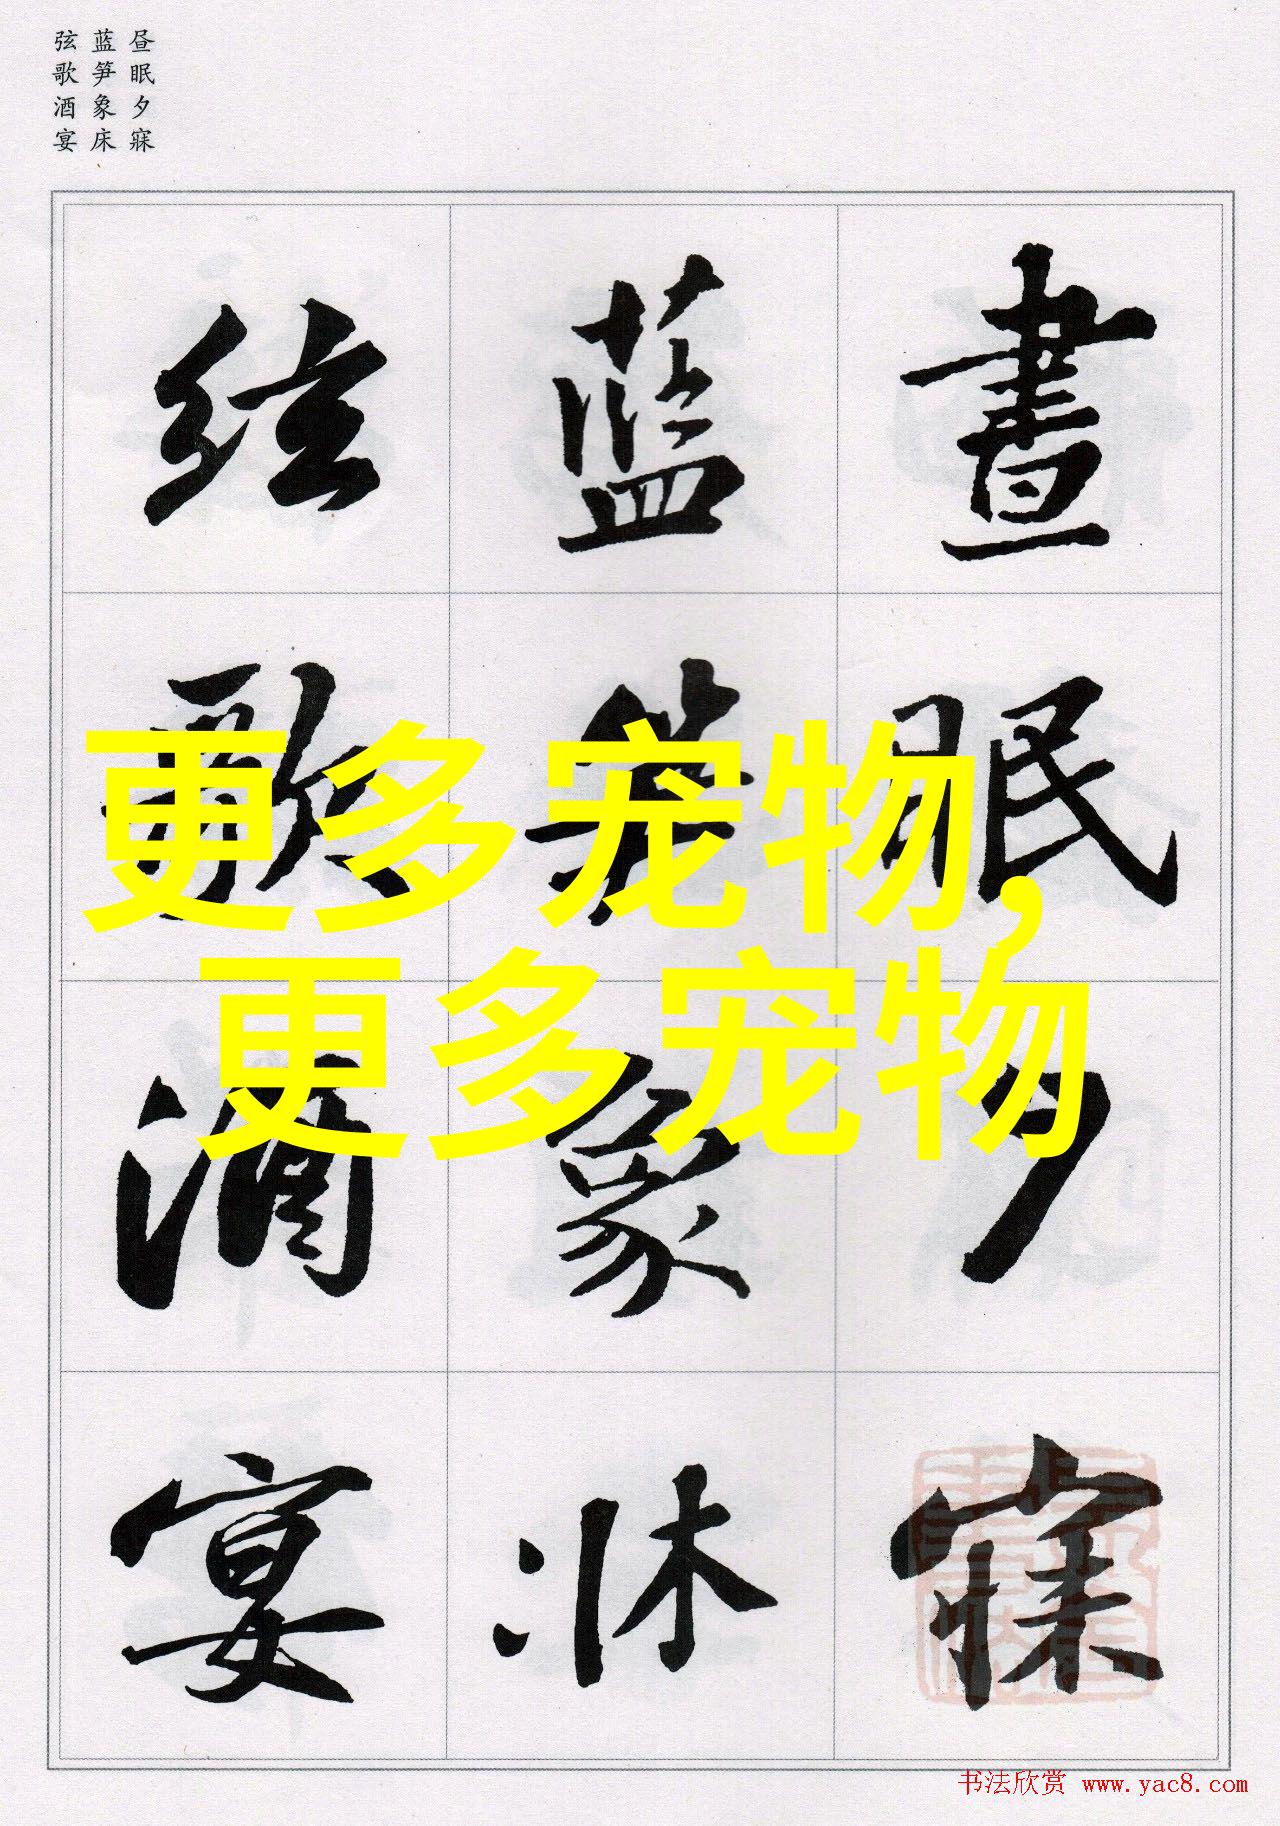 昼眠夕寐
蓝笋象床
弦歌酒宴
晝眠夕寐
藍笋象牀
絃歌酒宴
更多宠物,
更多宠物
书法欣赏 www.yac8.com